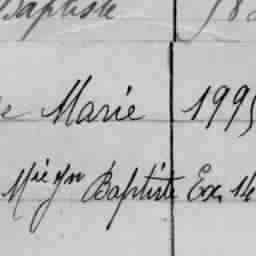 Baptiste
Marie 1995
M^ie J^n Baptiste Ex, 14